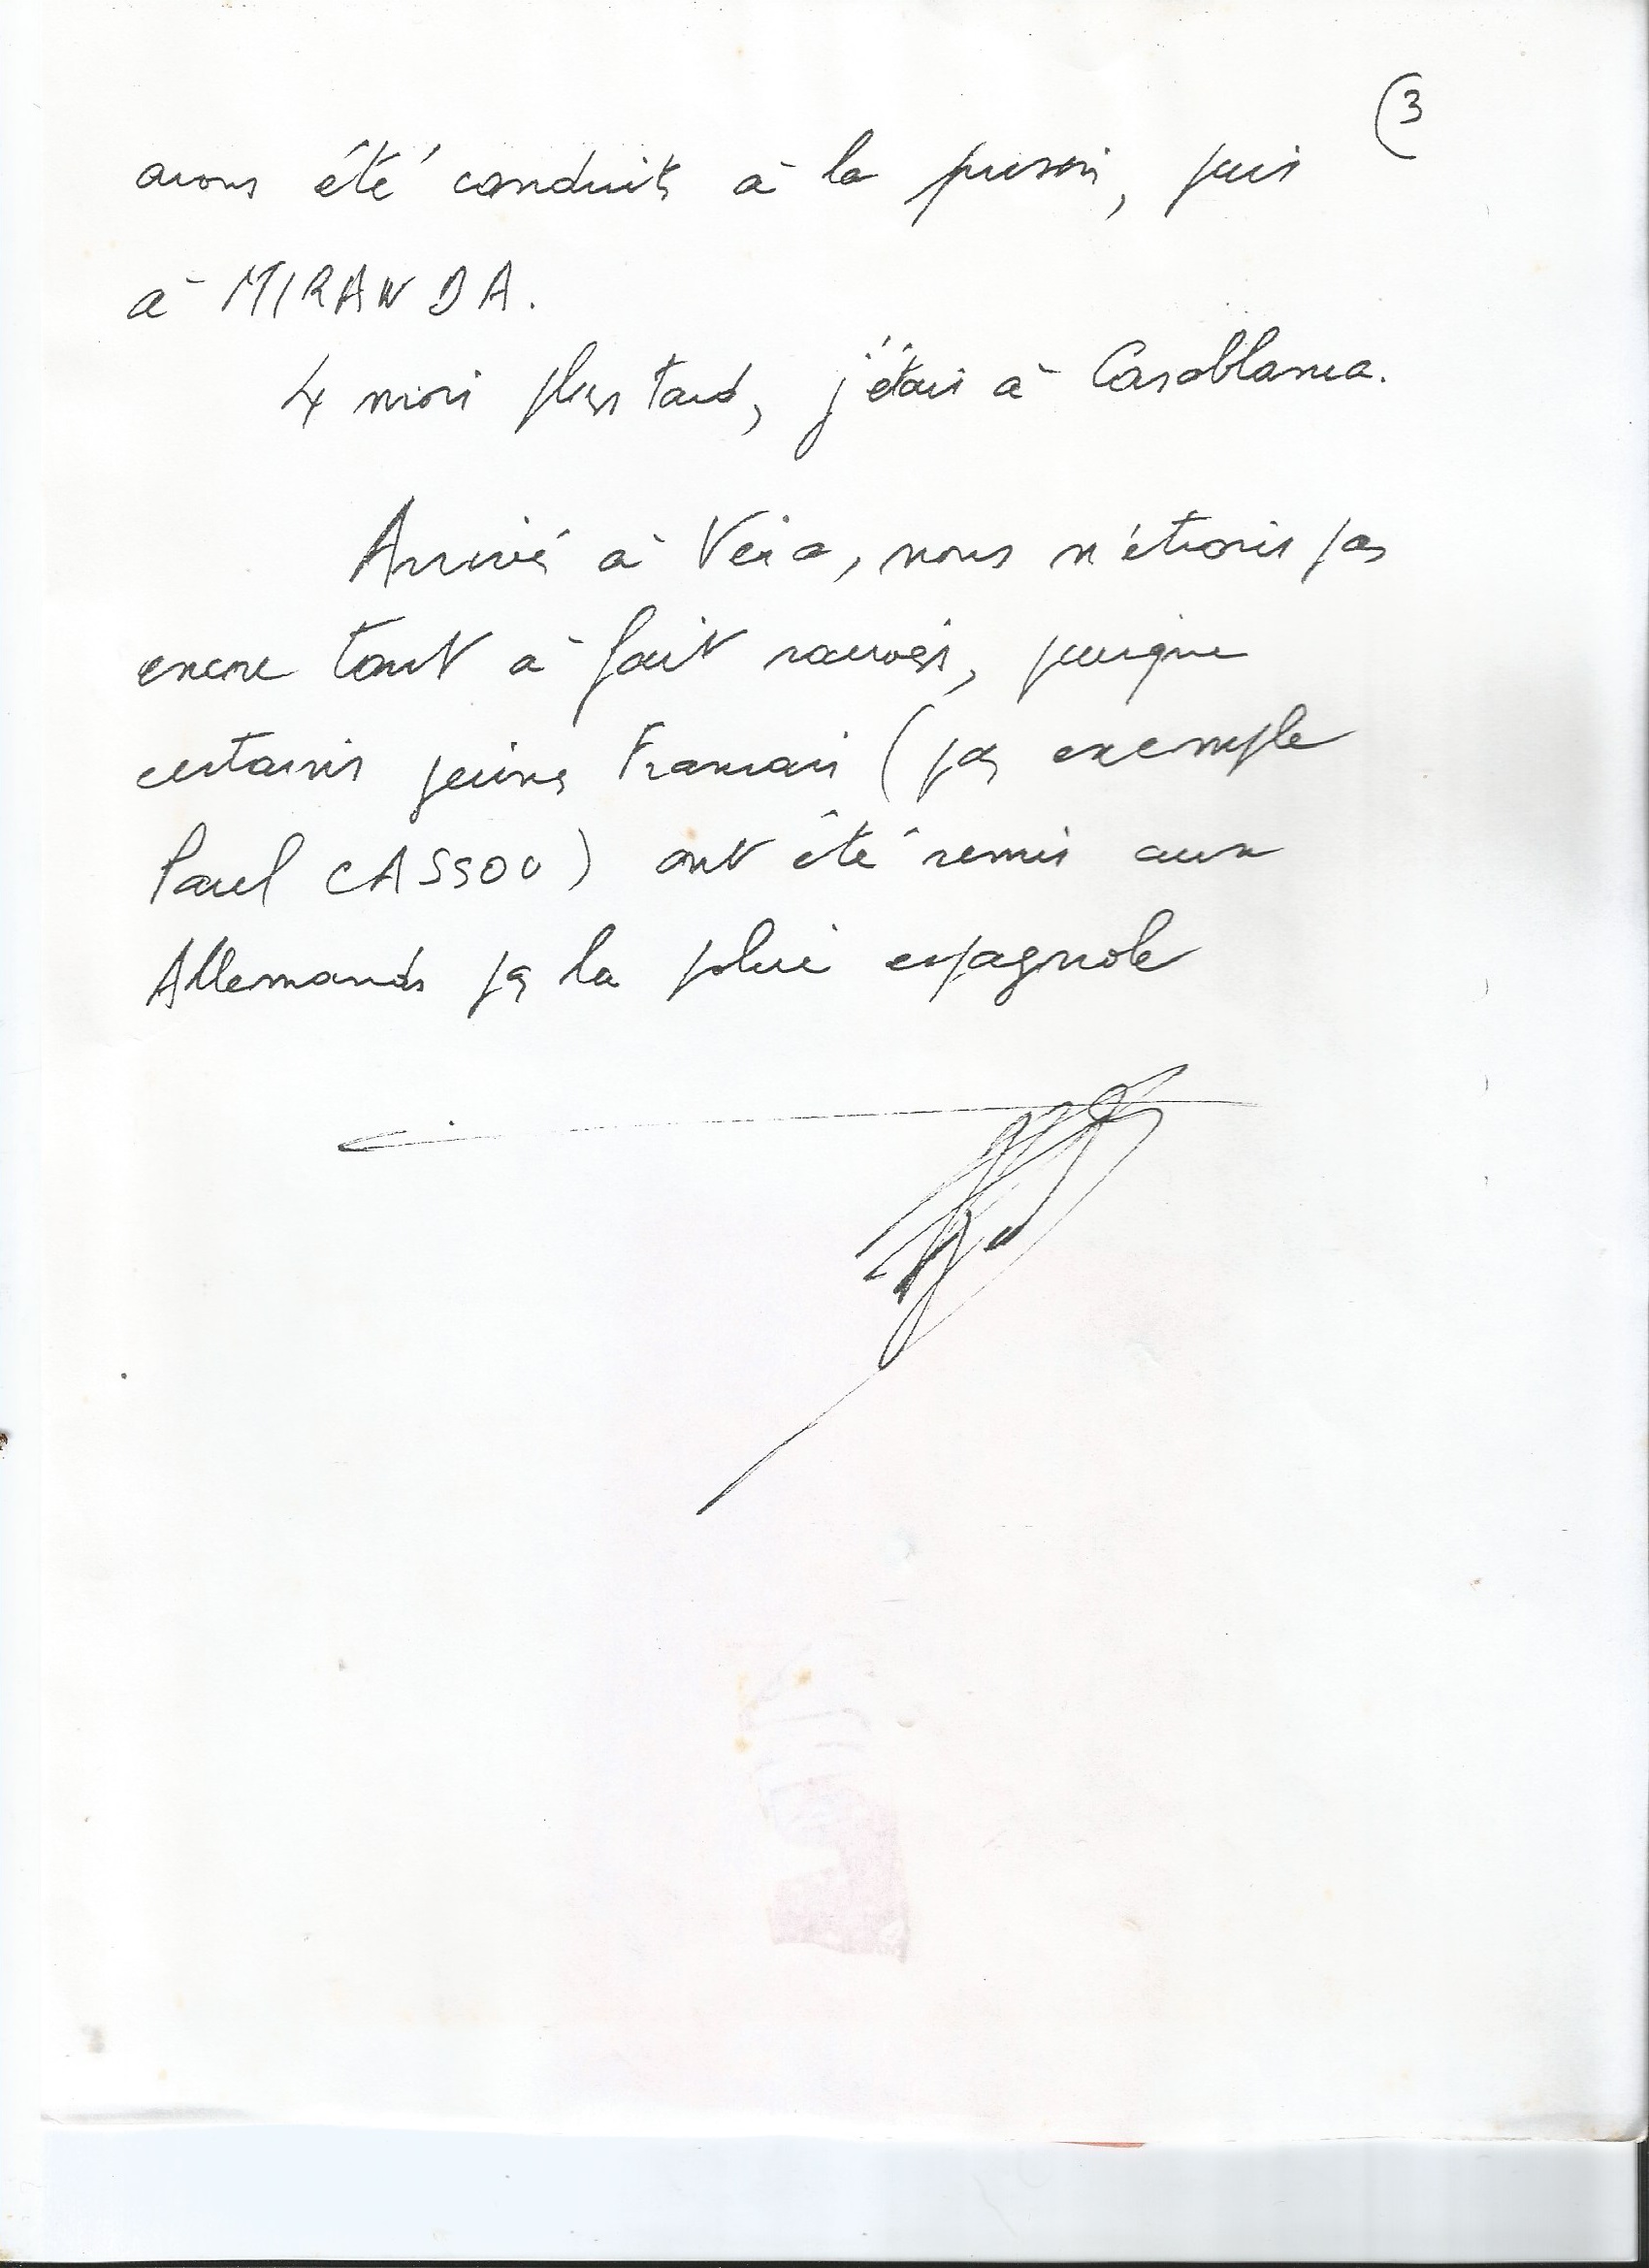 (3
avons été conduits à la prison, puis
à MIRANDA.
4 mois plus tard, j'étais à Casablanca.
Arrivés à Vera, nous n'étions pas
encore tout à fait sauvés, puisque
certains jeunes Français (par exemple
Paul CASSOU) ont été remis aux
Allemands par la police espagnole